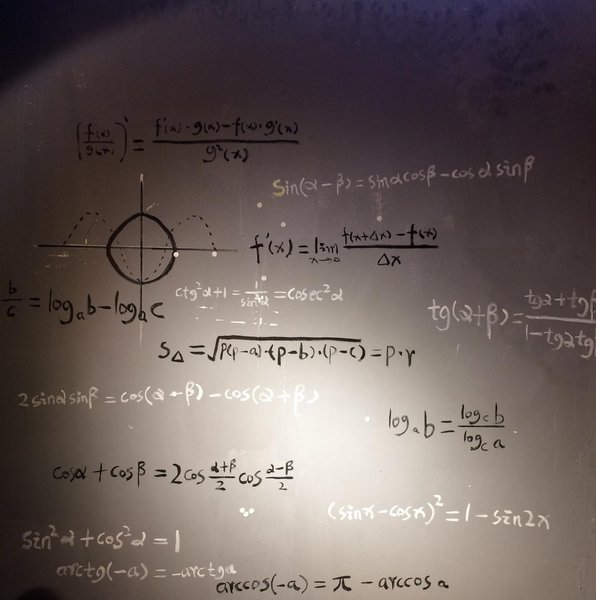 (f(x)/g(x))' = (f'(x)·g(x)-f(x)·g'(x))/g²(x)
sin(α-β)=sinαcosβ-cosα sinβ
f'(x)=lim x→0 (f(x+Δx)-f(x))/Δx
ctg²α+1=1/sin²α=cosec²α
b/c = logₐb-logₐc
tg(α+β)=(tgα+tgβ)/(1-tgαtg
S△=√(p(p-a)·(p-b)·(p-c))=p·r
2sinα sinβ=cos(α-β)-cos(α+β)
logₐb=log_c b/log_c a
cosα+cosβ=2cos (α+β)/2 cos (α-β)/2
(sinx-cosx)²=1-sin2x
sin²α+cos²α=1
arctg(-a)=-arctga
arccos(-a)=π-arccosa